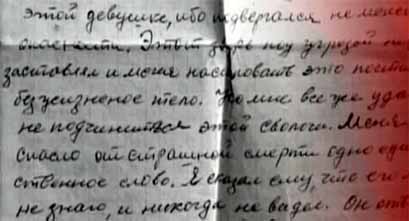 этой девушке, ибо подвергался не менее
опасности. Этот зверь под угрозой
заставлял и меня насиловать это
безжизненое тело. Но мне все же уда
не подчиниться этой сволочи. Меня
спасло от страшной смерти одно един
ственное слово. Я сказал ему, что его
не знаю, и никогда не видел. Он отп